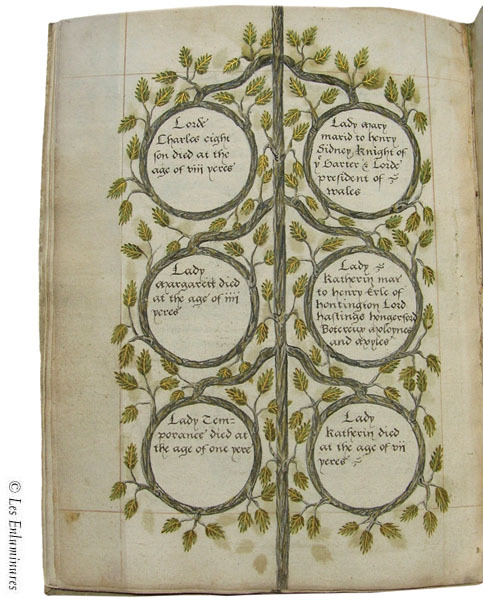 Lorde
Charles eight
son died at the
age of viii yeres
Lady mary
marid to henry
Sidney Knight of
yͤ Garter & Lorde
president of
wales
Lady
Margarett died
at the age of iiii
yeres
Lady
Katherin mar
to henry Erle of
hontington Lord
hastings hongerford
Botereux moloynes
and
Lady Tem=
porance died at
the age of one yere
Lady
Katherin died
at the age of vii
yeres
© Les Enluminures